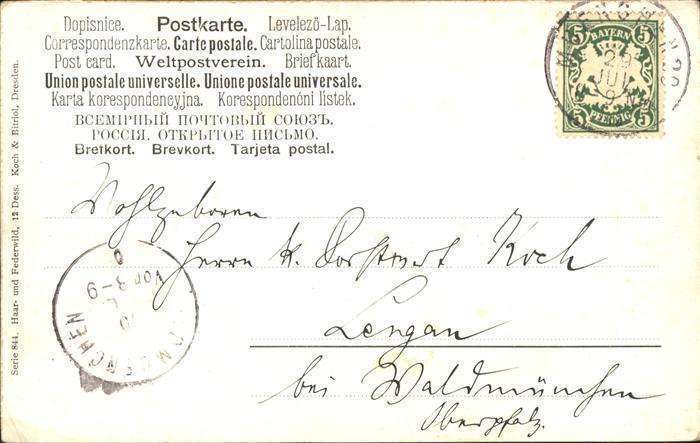 Dopisnice. Postkarte. Levelezö-Lap.
Correspondenzkarte. Carte postale. Cartolina postale.
Post card. Weltpostverein. Briefkaart.
Union postale universelle. Unione postale universale.
Karta korespondencyjna. Korespondenóni lístek.
ВСЕМІРНЫЙ ПОЧТОВЫЙ СОЮЗЪ.
РОССІЯ. ОТКРЫТОЕ ПИСЬМО.
Bretkort. Brevkort. Tarjeta postal.
5 BAYERN 5
5 PFENNIG 5
25
JUL
9
Wohlgeboren
Herrn k. Forstwart Koch
Lengau
bei Waldmünchen
Oberpfalz.
Vor. 8-9
Serie 844. Haar- und Federwild, 12 Dess. Koch & Bitriol, Dresden.